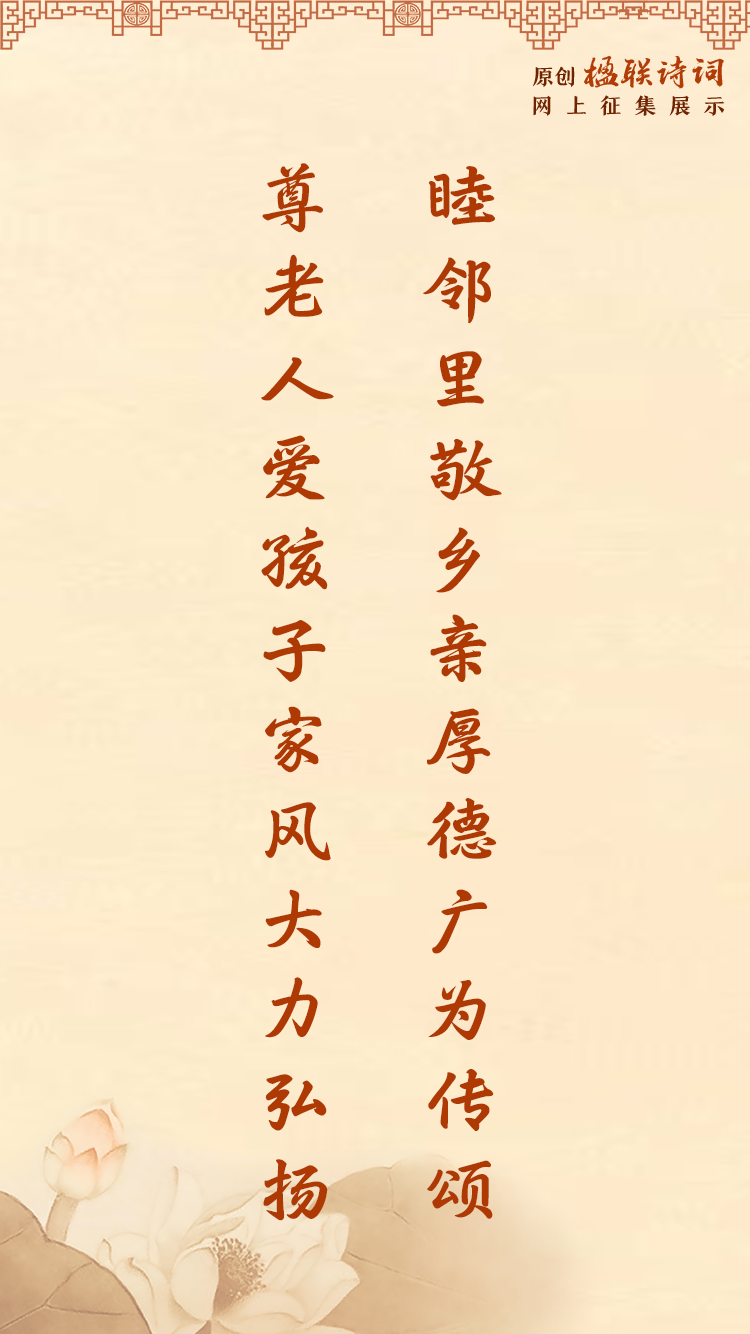 原创 楹联诗词
网上征集展示
睦邻里敬乡亲厚德广为传颂
尊老人爱孩子家风大力弘扬